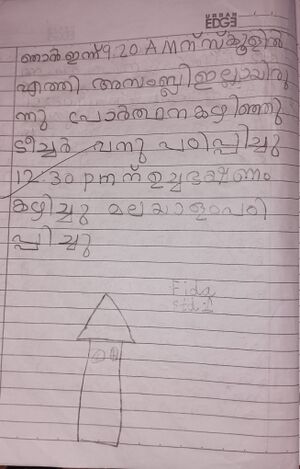 URBAN
EDGE
ഞാൻ ഇന്ന് 9.20 AM ന് സ്കൂളിൽ
എത്തി അസംബ്ലി ഇല്ലായിരു
ന്നു പ്രാർത്ഥന കഴിഞ്ഞു
ടീച്ചർ വന്നു പഠിപ്പിച്ചു
12.30 pm ന് ഉച്ചഭക്ഷണം
കഴിച്ചു മലയാളം പഠി
പ്പിച്ചു
Fida
std:2